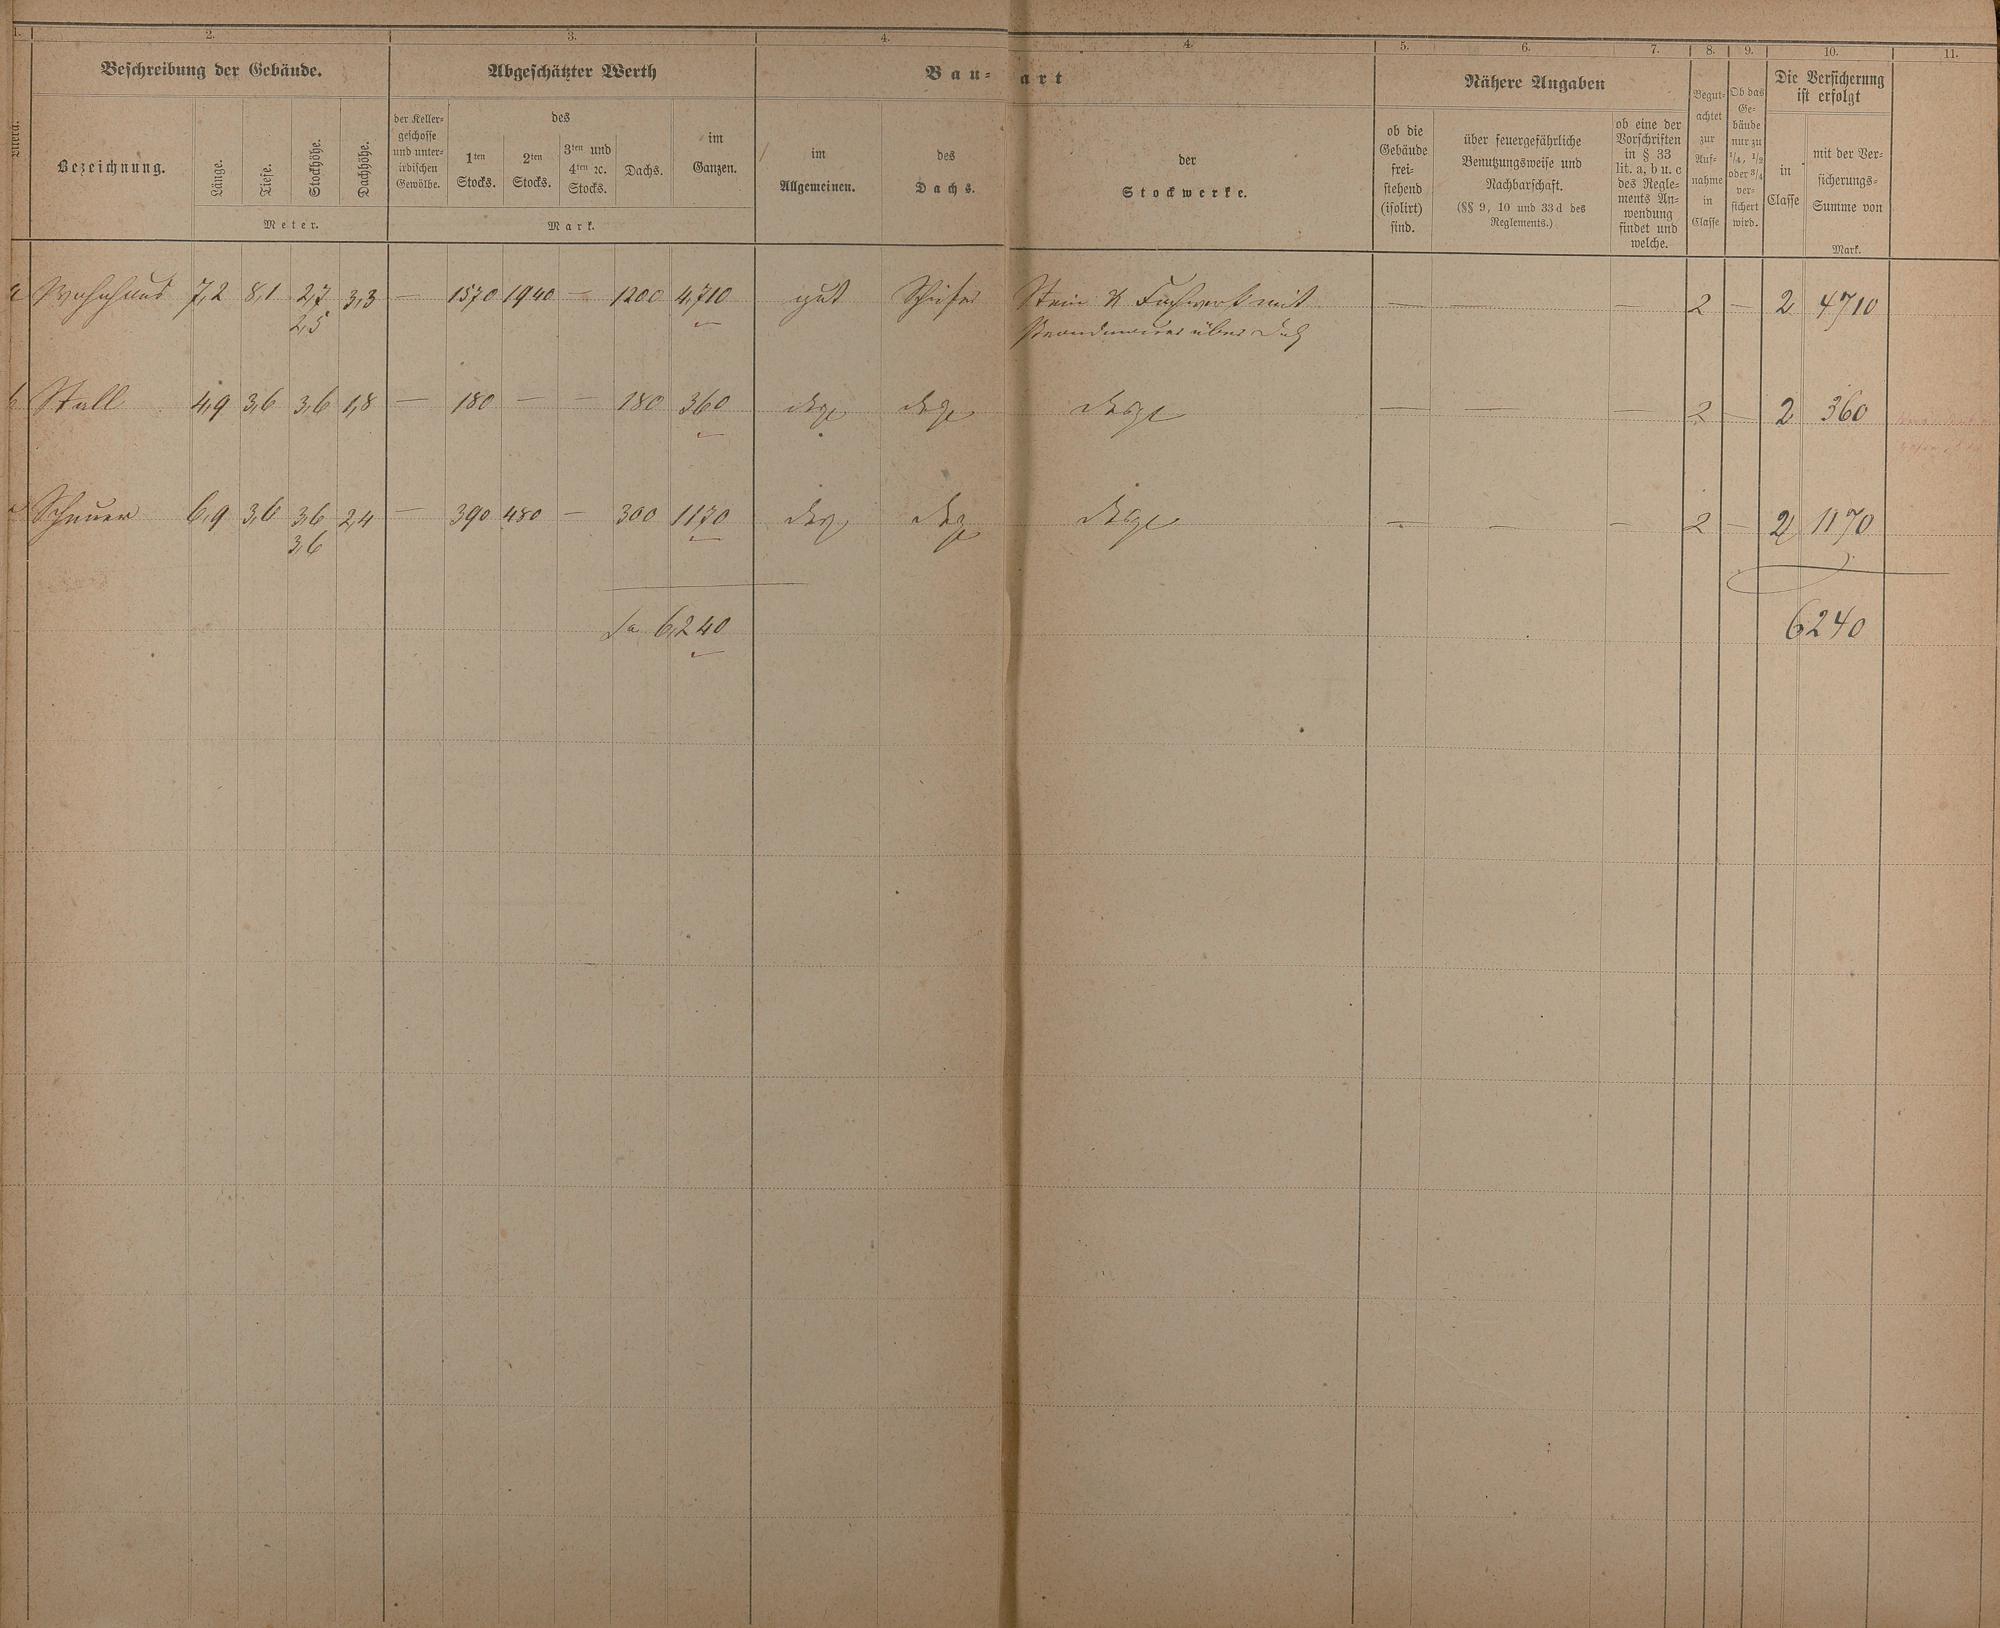 1. 2. 3. 4. 4. 5. 6. 7. 8. 9. 10. 11.
Beschreibung der Gebäude. Abgeschätzter Werth Bau- art Nähere Angaben Die Versicherung
ist erfolgt
Littera.
Bezeichnung.
Länge.
Tiefe.
Stockhöhe.
Dachhöhe.
Meter.
der Keller-
geschosse
und unter-
irdischen
Gewölbe.
des
1ten
Stocks.
2ten
Stocks.
3ten und
4ten ꝛc.
Stocks.
Dachs.
im
Ganzen.
Mark.
im
Allgemeinen.
des
Dachs.
der
Stockwerke.
ob die
Gebäude
frei-
stehend
(isolirt)
sind.
über feuergefährliche
Benutzungsweise und
Nachbarschaft.
(§§ 9, 10 und 33 d des
Reglements.)
ob eine der
Vorschriften
in § 33
lit. a, b u. c
des Regle-
ments An-
wendung
findet und
welche.
Begut-
achtet
zur
Auf-
nahme
in
Classe
Ob das
Ge-
bäude
nur zu
1/4, 1/2
oder 3/4
ver-
sichert
wird.
in
Classe
mit der Ver-
sicherungs-
Summe von
Mark.
a Wohnhaus 7,2 8,1 2,7 3,3 — 1570 1940 — 1200 4,710 gut Schiefer Stein & Fachwerk mit — — — 2 — 2 4710
2,5 Brandmauer über Dach
b Stall 4,9 3,6 3,6 1,8 — 180 — — 180 360 desgl desgl desgl — — — 2 — 2 360
c Scheuer 6,9 3,6 3,6 2,4 — 390 480 — 300 1170 desgl desgl desgl — — — 2 — 2 1170
3,6
Sa 6,240 6240